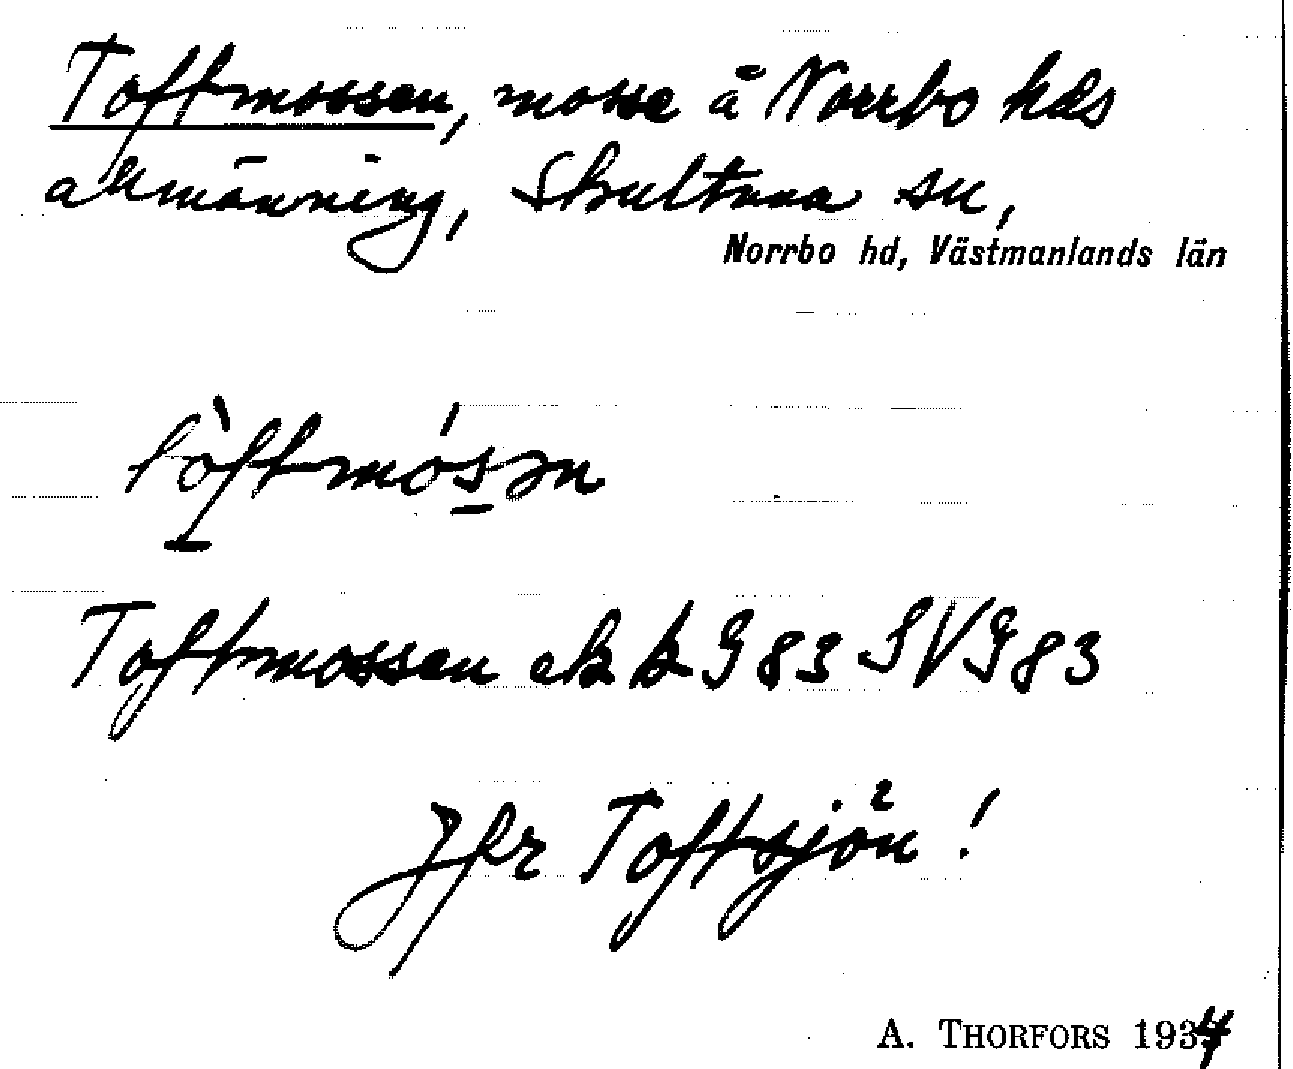 Toftmossen, mosse å Norrbo hds
allmänning, Skultuna sn,
Norrbo hd, Västmanlands län
tòftmósən
Toftmossen ek bl G 83 SV G 83
Jfr Toftsjön!
A. THORFORS 1934